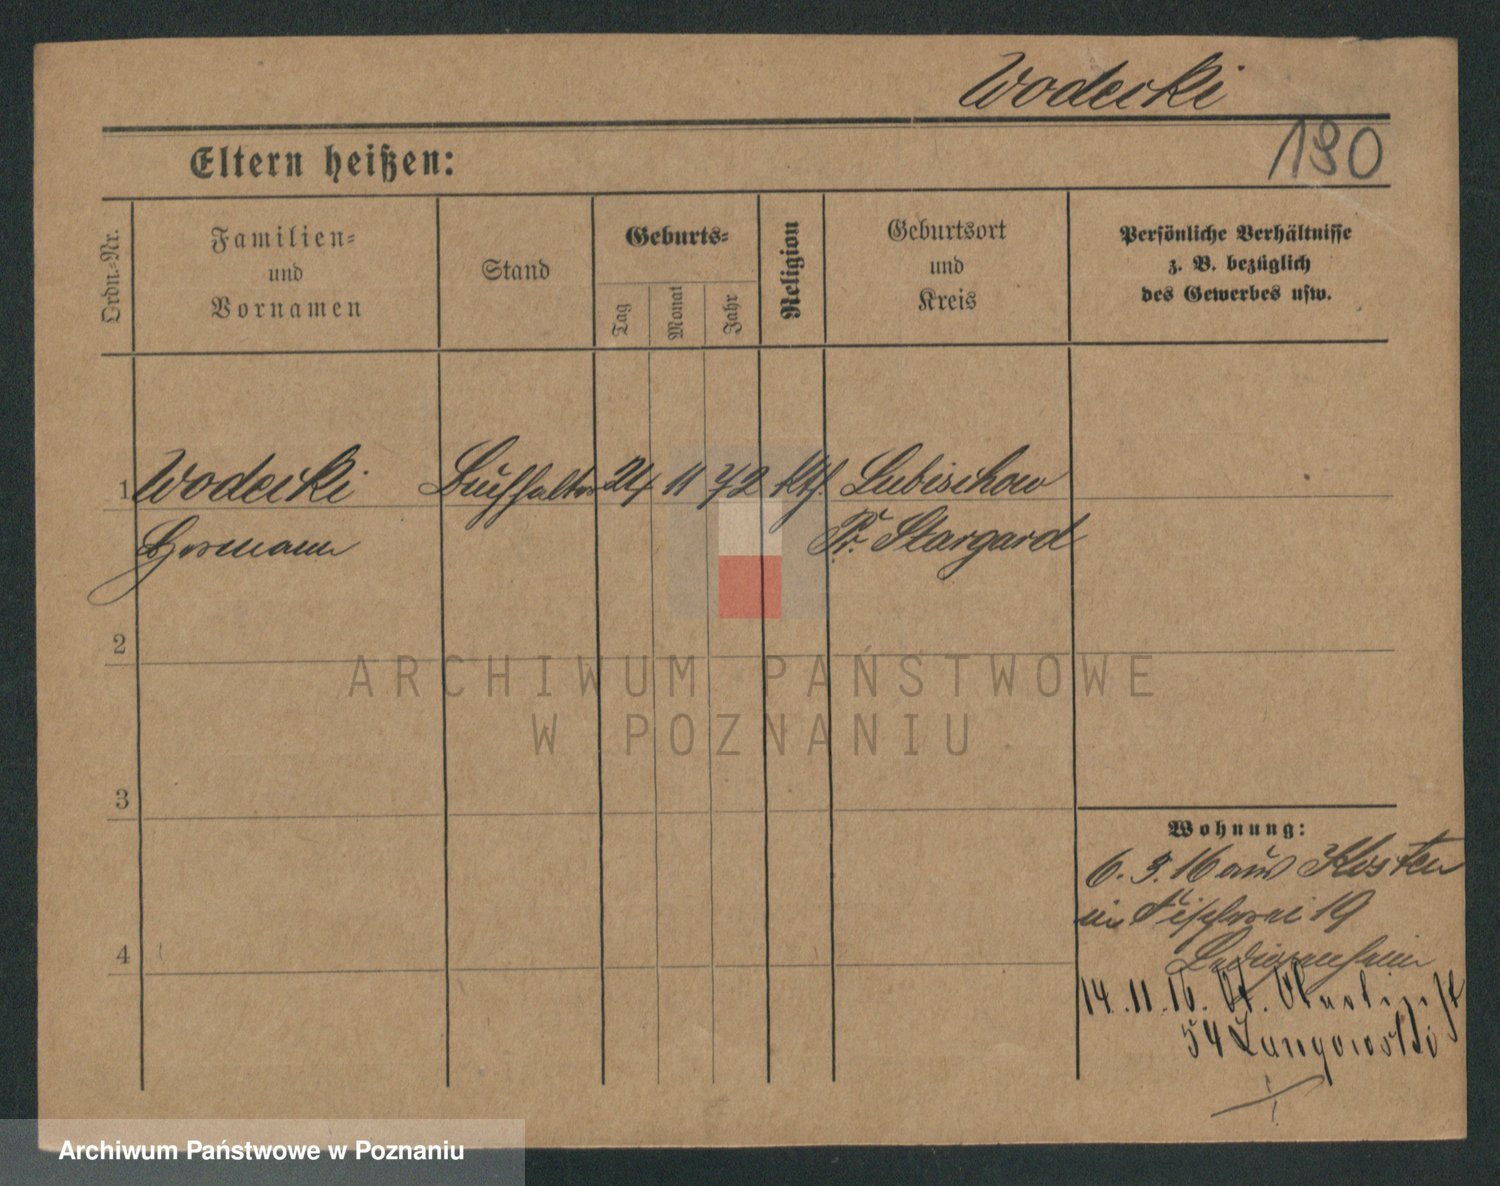 Wodecki
190
Eltern heißen:
Ordn.=Nr.
Familien=
und
Vornamen
Stand
Geburts=
Tag
Monat
Jahr
Religion
Geburtsort
und
Kreis
Persönliche Verhältnisse
z. B. bezüglich
des Gewerbes usw.
1 Wodecki Buchhalter 24 11 72 kth. Lubischow
Hermann Pr. Stargard
2
3
4
Wohnung:
6. 3. 16 aus Kosten
in Fischerei 19
14. 11. 16. St. Martinstr
54
ARCHIWUM PAŃSTWOWE
W POZNANIU
Archiwum Państwowe w Poznaniu